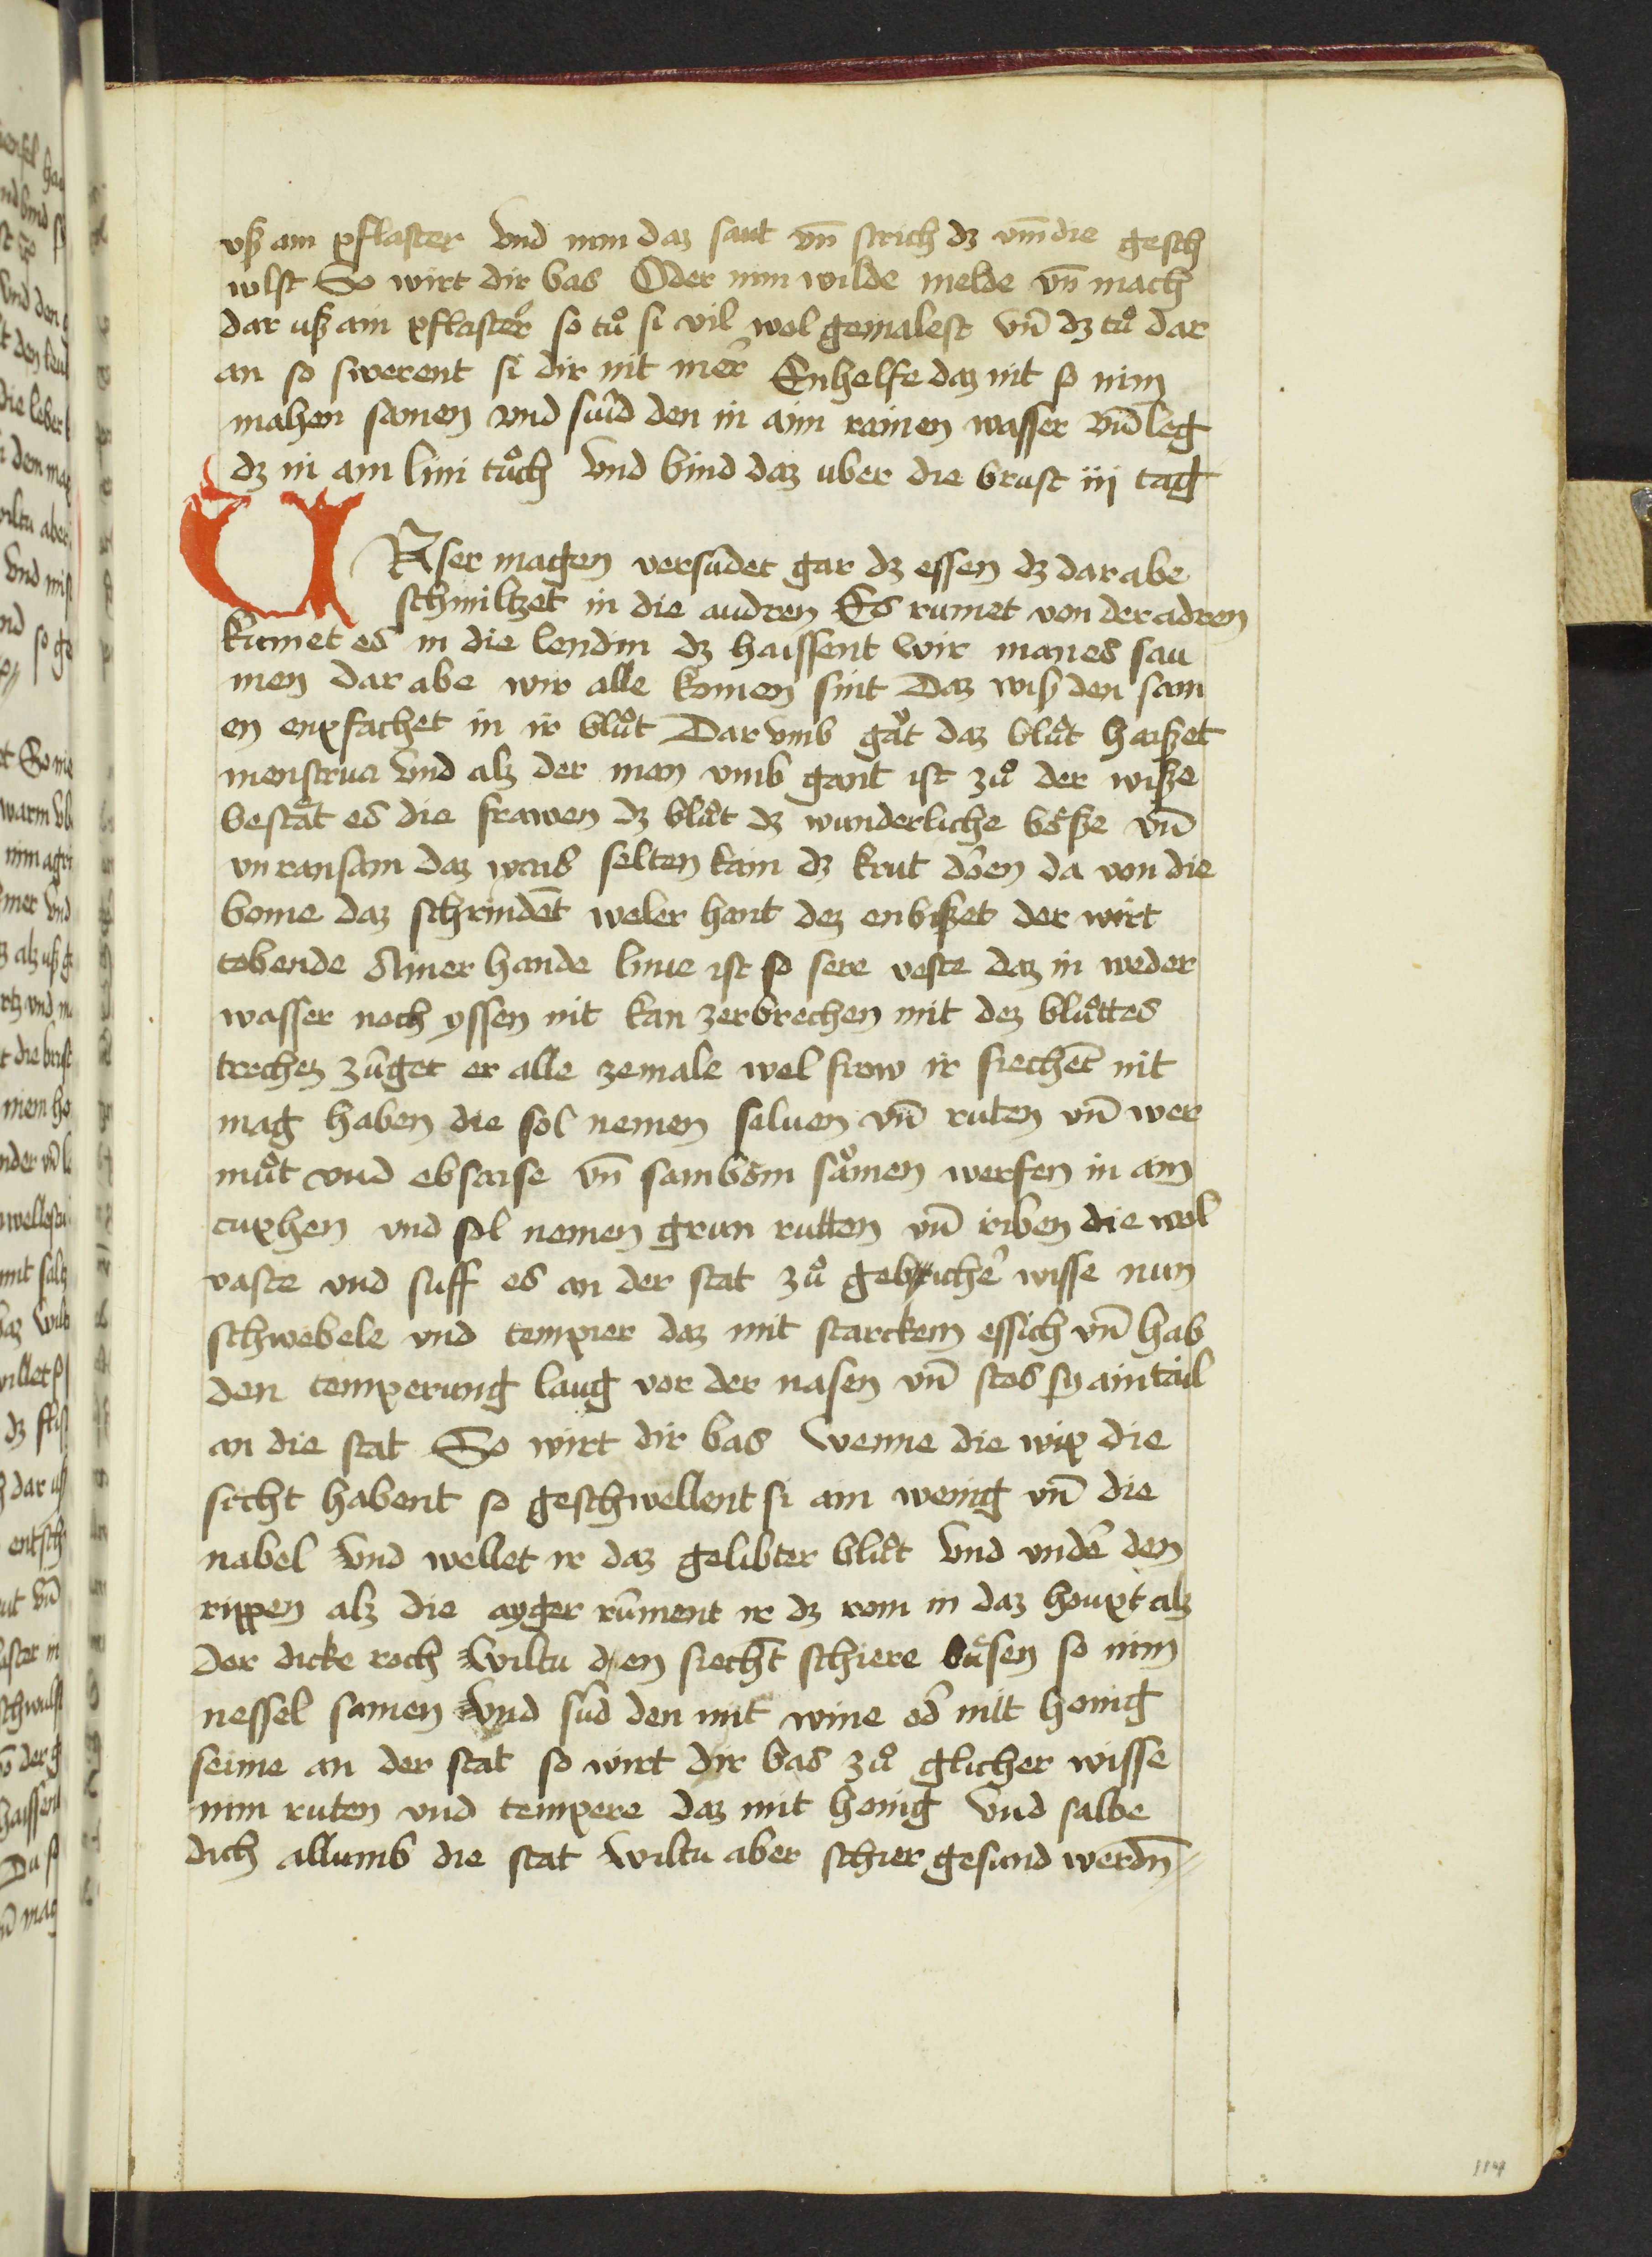 vß ain pflaster vnd nim daz saut vn̄ strich dz vm̄ die gesch
wlst So wirt dir bas Oder nim wilde melde vn̄ mach
dar uß ain pflaster so tuͦ si vil wol gemalest vn̄ dz tuͦ dar
an so swerent si dir nit mer Enhelfe daz nit so nim
mahen samen vnd suid den in aim rainen wasser vn̄ leg
dz in ain lini tuͦch vnd bind daz uber die brust iij tag
VNser magen versudet gar dz essen dz dar abe
schmiltzet in die audren Es rumet von der adren
kumet es in die lendin dz haissent wir manes sau
men dar abe wir alle komen sint Daz wip den sam
en enpfachet in ir bluͦt Dar vmb gat daz bluͦt haißet
menstrua vnd alz der man vmb gant ist zuͦ der wiße
bestat es die frawen dz bluͦt dz wunderliche boͤße vn̄
vn ransam daz waus selten kain dz krut doͤen da von die
bome daz schrindet weler hant dez enbißet der wirt
tobende Ainer hande lime ist so sere veste daz in weder
wasser noch yssen nit kan zerbrechen mit dez bluͦttes
trechez zuget er alle zemale wel frow ir siechet nit
mag haben die sol nemen saluen vn̄ ruten vn̄ wer
muͦt vnd ebsaise vn̄ sambom samen werfen in ain
cuphen vnd sol nemen grun rutten vn̄ riben die wol
vaste vnd suff es an der stat zuͦ gelicher wisse nun
schwebele vnd tempier daz mit starckem essich vn̄ hab
den temperung laug vor der nasen vn̄ stos sy ain tail
an die stat So wirt dir bas Wenne die wip die
sicht habent so geschwellent si ain wenig vn̄ die
nabel vnd wellet ir daz geliberter bluͦt vnd vnder den
rippen alz die ayger rument ir dz rom in daz houpt alz
der dicke roch Wiltu den siecht schiere buͤsen so nim
nessel samen vnd sud den mit wine od̄ mit honig
seime an der stat so wirt dir bas zuͦ glicher wisse
nim ruten vnd tempere daz mit honig vnd salbe
dich allumb die stat wiltu aber schier gesund werdn̄
114